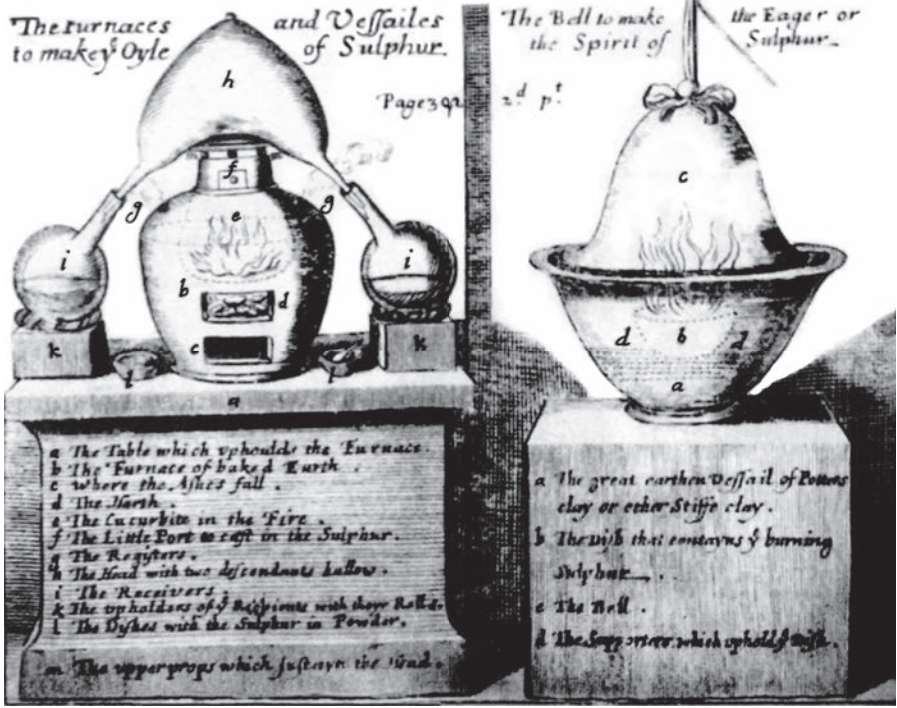 The furnaces and Vessailes
to make yͤ Oyle of Sulphur.
The Bell to make the Eager or
the Spirit of Sulphur.
Page 392 2.d pt.
h
f
g g
e
i i
b d
c
k k
l l
a
a The Table which vphoulds the Furnace.
b The Furnace of baked Earth.
c Where the Ashes fall.
d The Harth.
e The Cucurbite in the Fire.
f The Little Port to cast in the Sulphur.
g The Registers.
h The Head with two descendants hallow.
i The Receivers.
k The vpholders of yͤ Recipients with theyr Rolls.
l The Dishes with the Sulphur in Powder.
m The vpper props which sustayn the Head.
c
d b d
a
a The great earthen Vessail of Potters
clay or other Stiffe clay.
b The Dish that contayns yͤ burning
Sulphur.
c The Bell.
d The Supporters which uphold yͤ Dish.